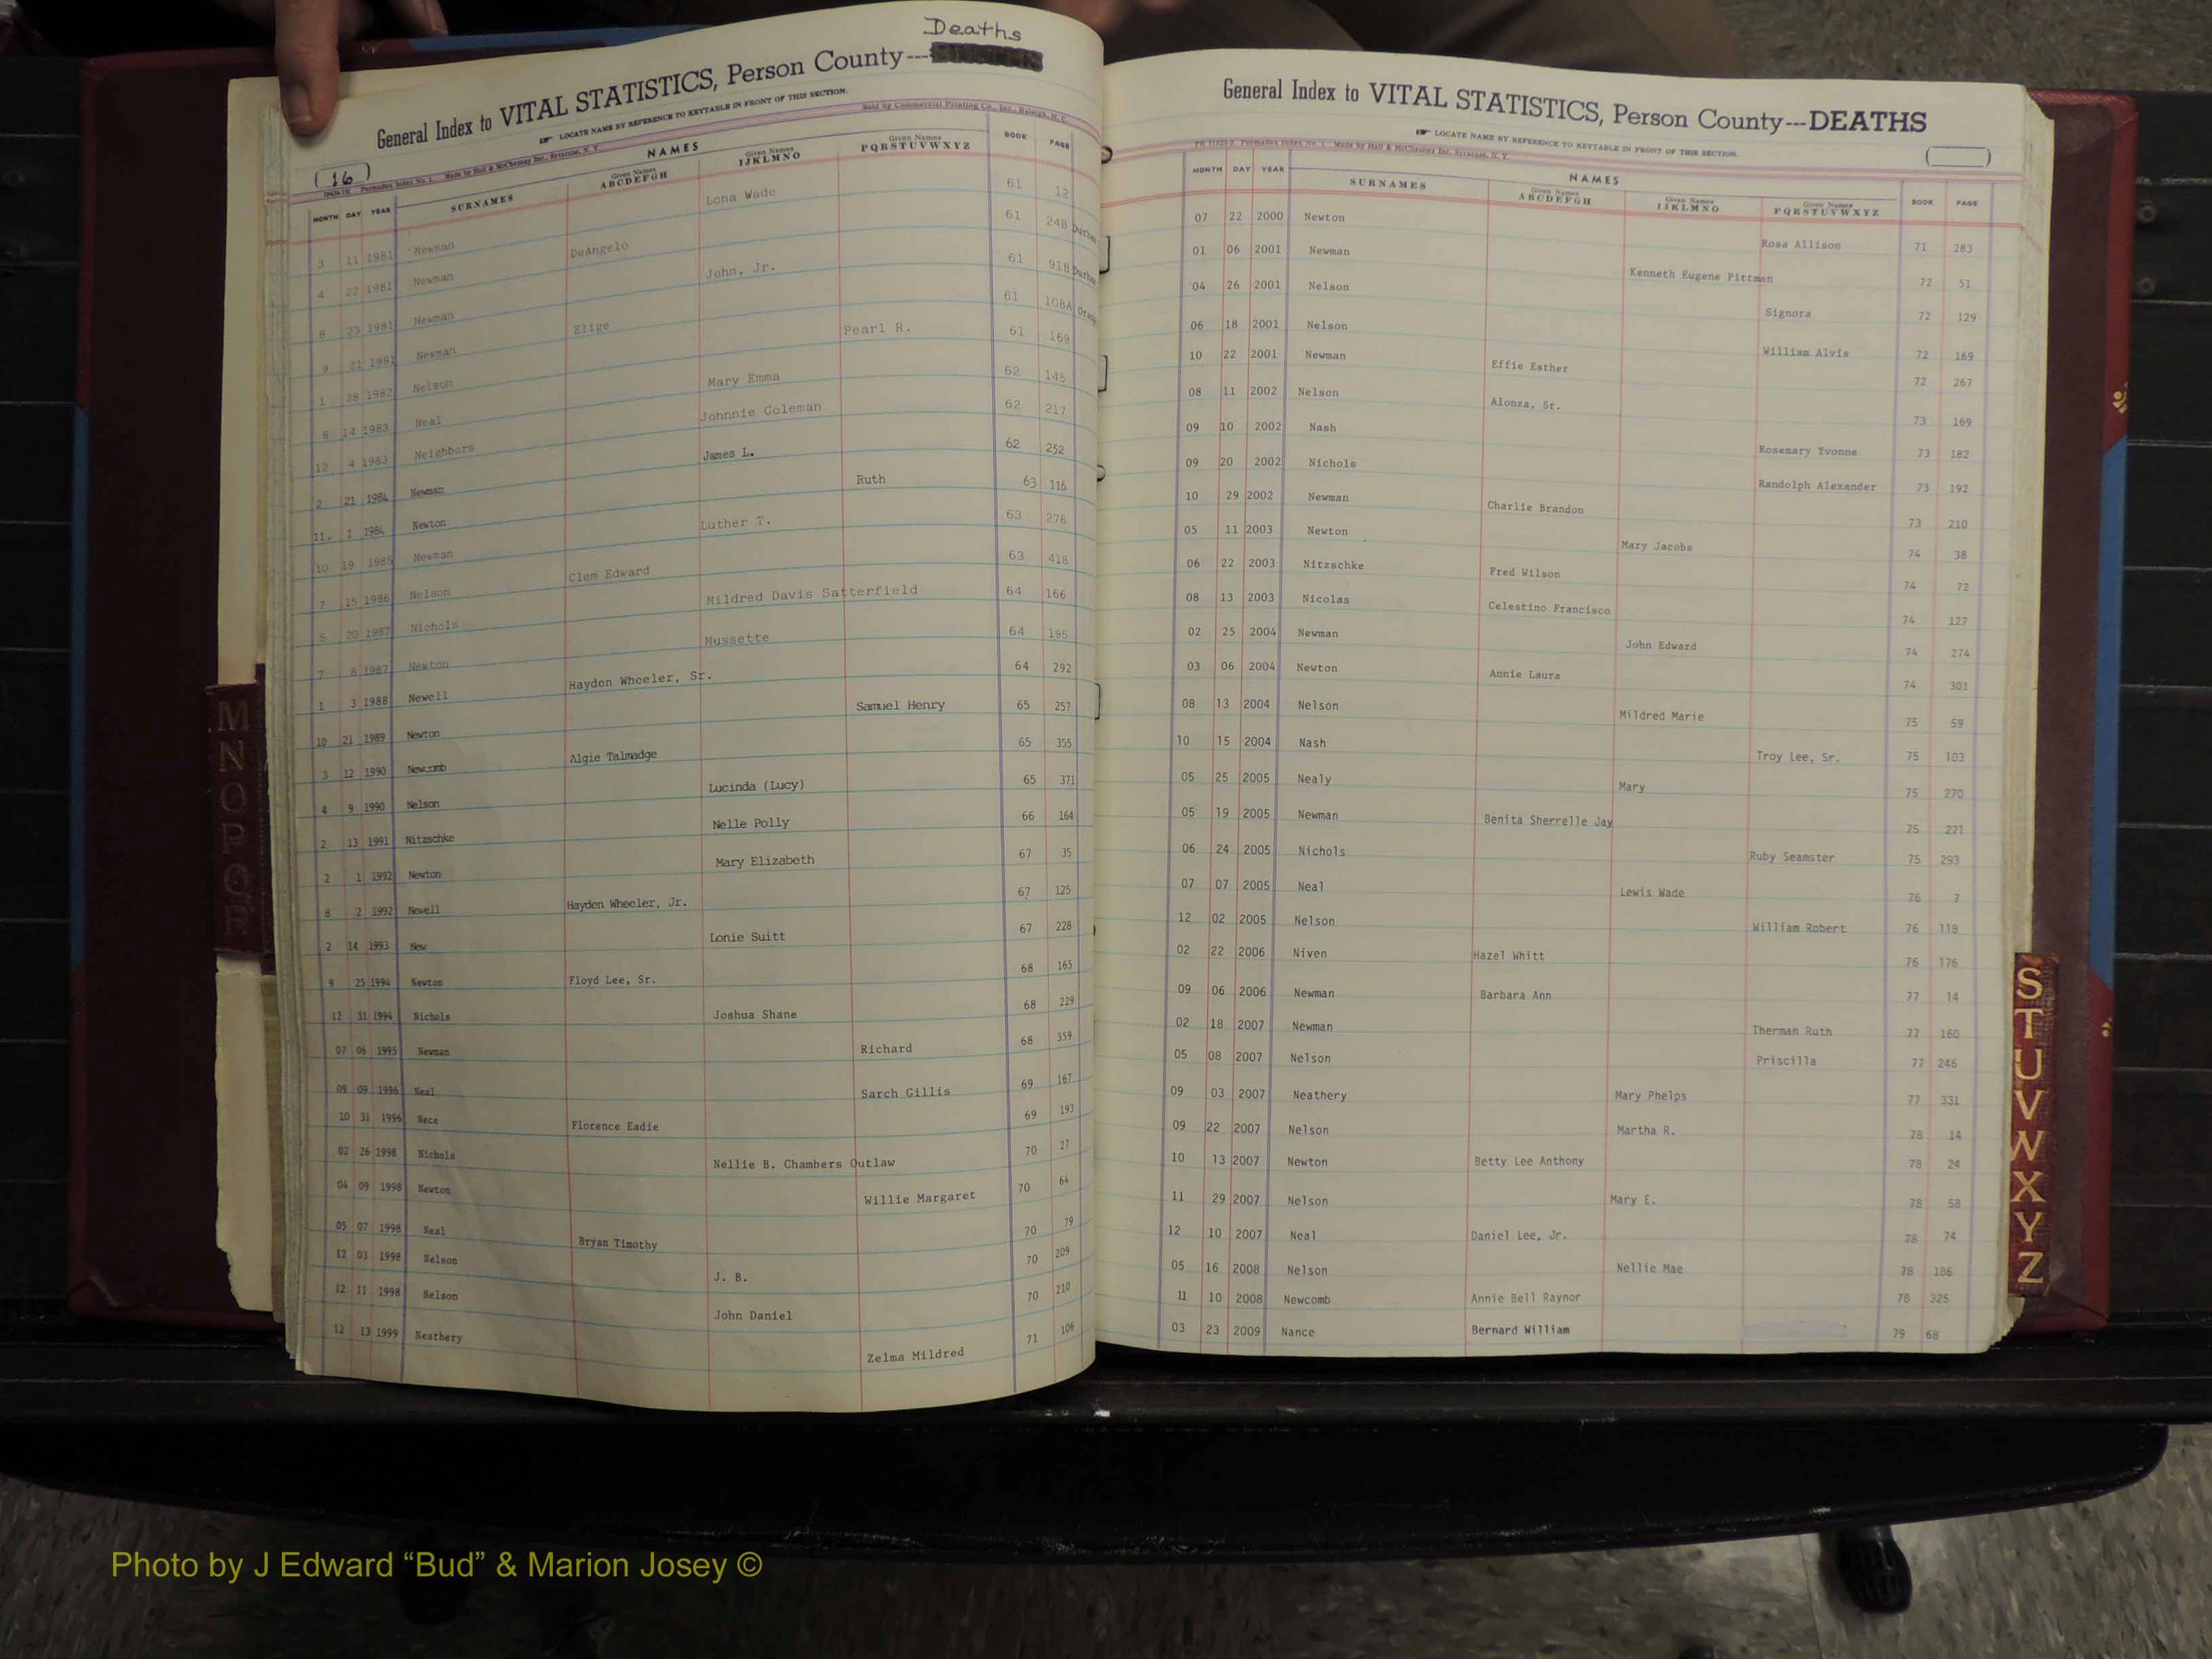 Deaths
General Index to VITAL STATISTICS, Person County---
LOCATE NAME BY REFERENCE TO KEYTABLE IN FRONT OF THIS SECTION.
Sold by Commercial Printing Co., Inc., Raleigh, N. C.
(16) Permanex Index No. 1. Made by Hall & McChesney Inc., Syracuse, N. Y.
MONTH DAY YEAR SURNAMES NAMES Given Names ABCDEFGH Given Names IJKLMNO Given Names PQRSTUVWXYZ BOOK PAGE
3 11 1981 Newman Lona Wade 61 12
4 22 1981 Newman DeAngelo 61 24B Durham
8 23 1981 Newman John, Jr. 61 91B Durham
9 21 1981 Newman Elige 61 108A Orange
1 28 1982 Nelson Pearl R. 61 169
8 14 1983 Neal Mary Emma 62 145
12 4 1983 Neighbors Johnnie Coleman 62 217
2 21 1984 Newman James L. 62 252
11. 1 1984 Newton Ruth 63 116
10 19 1985 Newman Luther T. 63 276
7 15 1986 Nelson Clem Edward 63 418
5 20 1987 Nichols Mildred Davis Satterfield 64 166
7 8 1987 Newton Mussette 64 195
1 3 1988 Newell Hayden Wheeler, Sr. 64 292
10 21 1989 Newton Samuel Henry 65 257
3 12 1990 Newcomb Algie Talmadge 65 355
4 9 1990 Nelson Lucinda (Lucy) 65 371
2 13 1991 Nitzschke Nelle Polly 66 164
2 1 1992 Newton Mary Elizabeth 67 35
8 2 1992 Newell Hayden Wheeler, Jr. 67 125
2 14 1993 New Lonie Suitt 67 228
9 25 1994 Newton Floyd Lee, Sr. 68 165
12 31 1994 Nichols Joshua Shane 68 229
07 06 1995 Newman Richard 68 359
09 09 1996 Neal Sarch Gillis 69 167
10 31 1996 Nece Florence Eadie 69 193
02 26 1998 Nichols Nellie B. Chambers Outlaw 70 27
04 09 1998 Newton Willie Margaret 70 64
05 07 1998 Neal Bryan Timothy 70 79
12 03 1998 Nelson J. B. 70 209
12 11 1998 Nelson John Daniel 70 210
12 13 1999 Neathery Zelma Mildred 71 106
General Index to VITAL STATISTICS, Person County---DEATHS
LOCATE NAME BY REFERENCE TO KEYTABLE IN FRONT OF THIS SECTION.
Permanex Index No. 1. Made by Hall & McChesney Inc. Syracuse, N. Y.
MONTH DAY YEAR SURNAMES NAMES Given Names ABCDEFGH Given Names IJKLMNO Given Names PQRSTUVWXYZ BOOK PAGE
07 22 2000 Newton Rosa Allison 71 283
01 06 2001 Newman Kenneth Eugene Pittman 72 51
04 26 2001 Nelson Signora 72 129
06 18 2001 Nelson William Alvis 72 169
10 22 2001 Newman Effie Esther 72 267
08 11 2002 Nelson Alonza, Sr. 73 169
09 10 2002 Nash Rosemary Yvonne 73 182
09 20 2002 Nichols Randolph Alexander 73 192
10 29 2002 Newman Charlie Brandon 73 210
05 11 2003 Newton Mary Jacobs 74 38
06 22 2003 Nitzschke Fred Wilson 74 72
08 13 2003 Nicolas Celestino Francisco 74 127
02 25 2004 Newman John Edward 74 274
03 06 2004 Newton Annie Laura 74 301
08 13 2004 Nelson Mildred Marie 75 59
10 15 2004 Nash Troy Lee, Sr. 75 103
05 25 2005 Nealy Mary 75 270
05 19 2005 Newman Benita Sherrelle Jay 75 271
06 24 2005 Nichols Ruby Seamster 75 293
07 07 2005 Neal Lewis Wade 76 7
12 02 2005 Nelson William Robert 76 118
02 22 2006 Niven Hazel Whitt 76 176
09 06 2006 Newman Barbara Ann 77 14
02 18 2007 Newman Therman Ruth 77 160
05 08 2007 Nelson Priscilla 77 246
09 03 2007 Neathery Mary Phelps 77 331
09 22 2007 Nelson Martha R. 78 14
10 13 2007 Newton Betty Lee Anthony 78 24
11 29 2007 Nelson Mary E. 78 58
12 10 2007 Neal Daniel Lee, Jr. 78 74
05 16 2008 Nelson Nellie Mae 78 186
11 10 2008 Newcomb Annie Bell Raynor 78 325
03 23 2009 Nance Bernard William 79 68
M
N
O
P
Q
R
S
T
U
V
W
X
Y
Z
Photo by J Edward “Bud” & Marion Josey ©